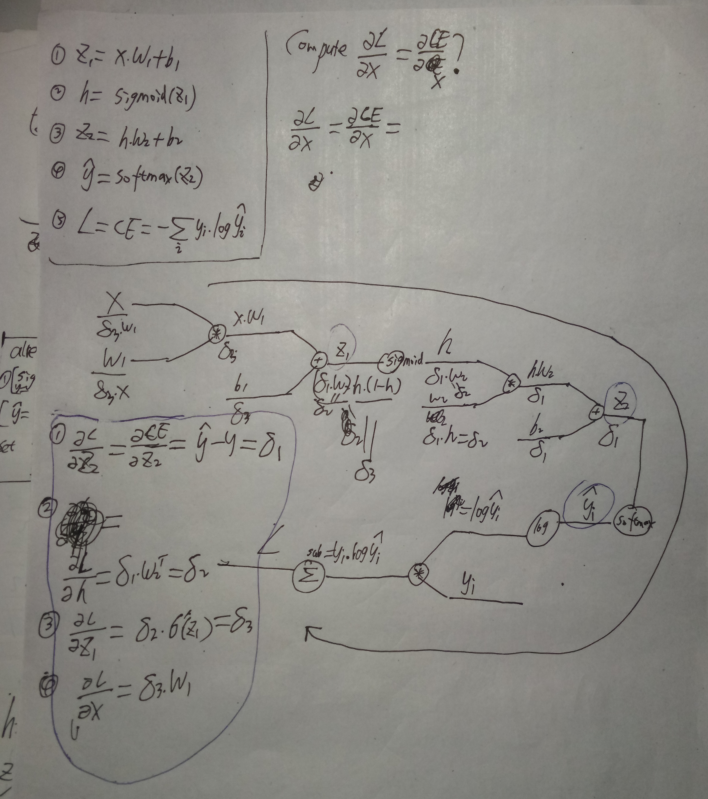 ① Z₁ = x·W₁+b₁
② h = sigmoid(Z₁)
③ Z₂ = h·W₂+b₂
④ ŷ = softmax(Z₂)
⑤ L = CE = -∑ᵢ yᵢ·log ŷᵢ
Compute ∂L/∂X = ∂CE/∂X ?
∂L/∂X = ∂CE/∂X =
X
δ₃·W₁
W₁
δ₃·X
*
x·W₁
δ₃
b₁
δ₃
+
Z₁
(δ₁·W₂)·h·(1-h)
δ₂
δ₃
sigmoid
h
δ₁·W₂
δ₂
W₂
δ₁·h = δ₂
*
hW₂
δ₁
b₂
δ₁
+
Z₂
δ₁
softmax
ŷᵢ
log
= log ŷᵢ
yᵢ
*
sub = yᵢ·log ŷᵢ
∑
L
① ∂L/∂Z₂ = ∂CE/∂Z₂ = ŷ-y = δ₁
② =
∂L/∂h = δ₁·W₂ᵀ = δ₂
③ ∂L/∂Z₁ = δ₂·σ'(Z₁) = δ₃
④ ∂L/∂X = δ₃·W₁
h
Z